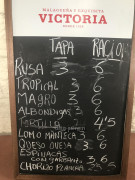 MALAGUEÑA Y EXQUISITA
VICTORIA
TAPA RACION
RUSA 3 6
TROPICAL 3 6
MAGRO 3 6
ALBONDIGAS 3 6
TORTILLA 4'5
LOMO MANTECA 3 6
QUESO OVEJA 3 6
ESPINACAS
CON GARBANZOS 3 6
CHORIZO PICANTE 2'5 5